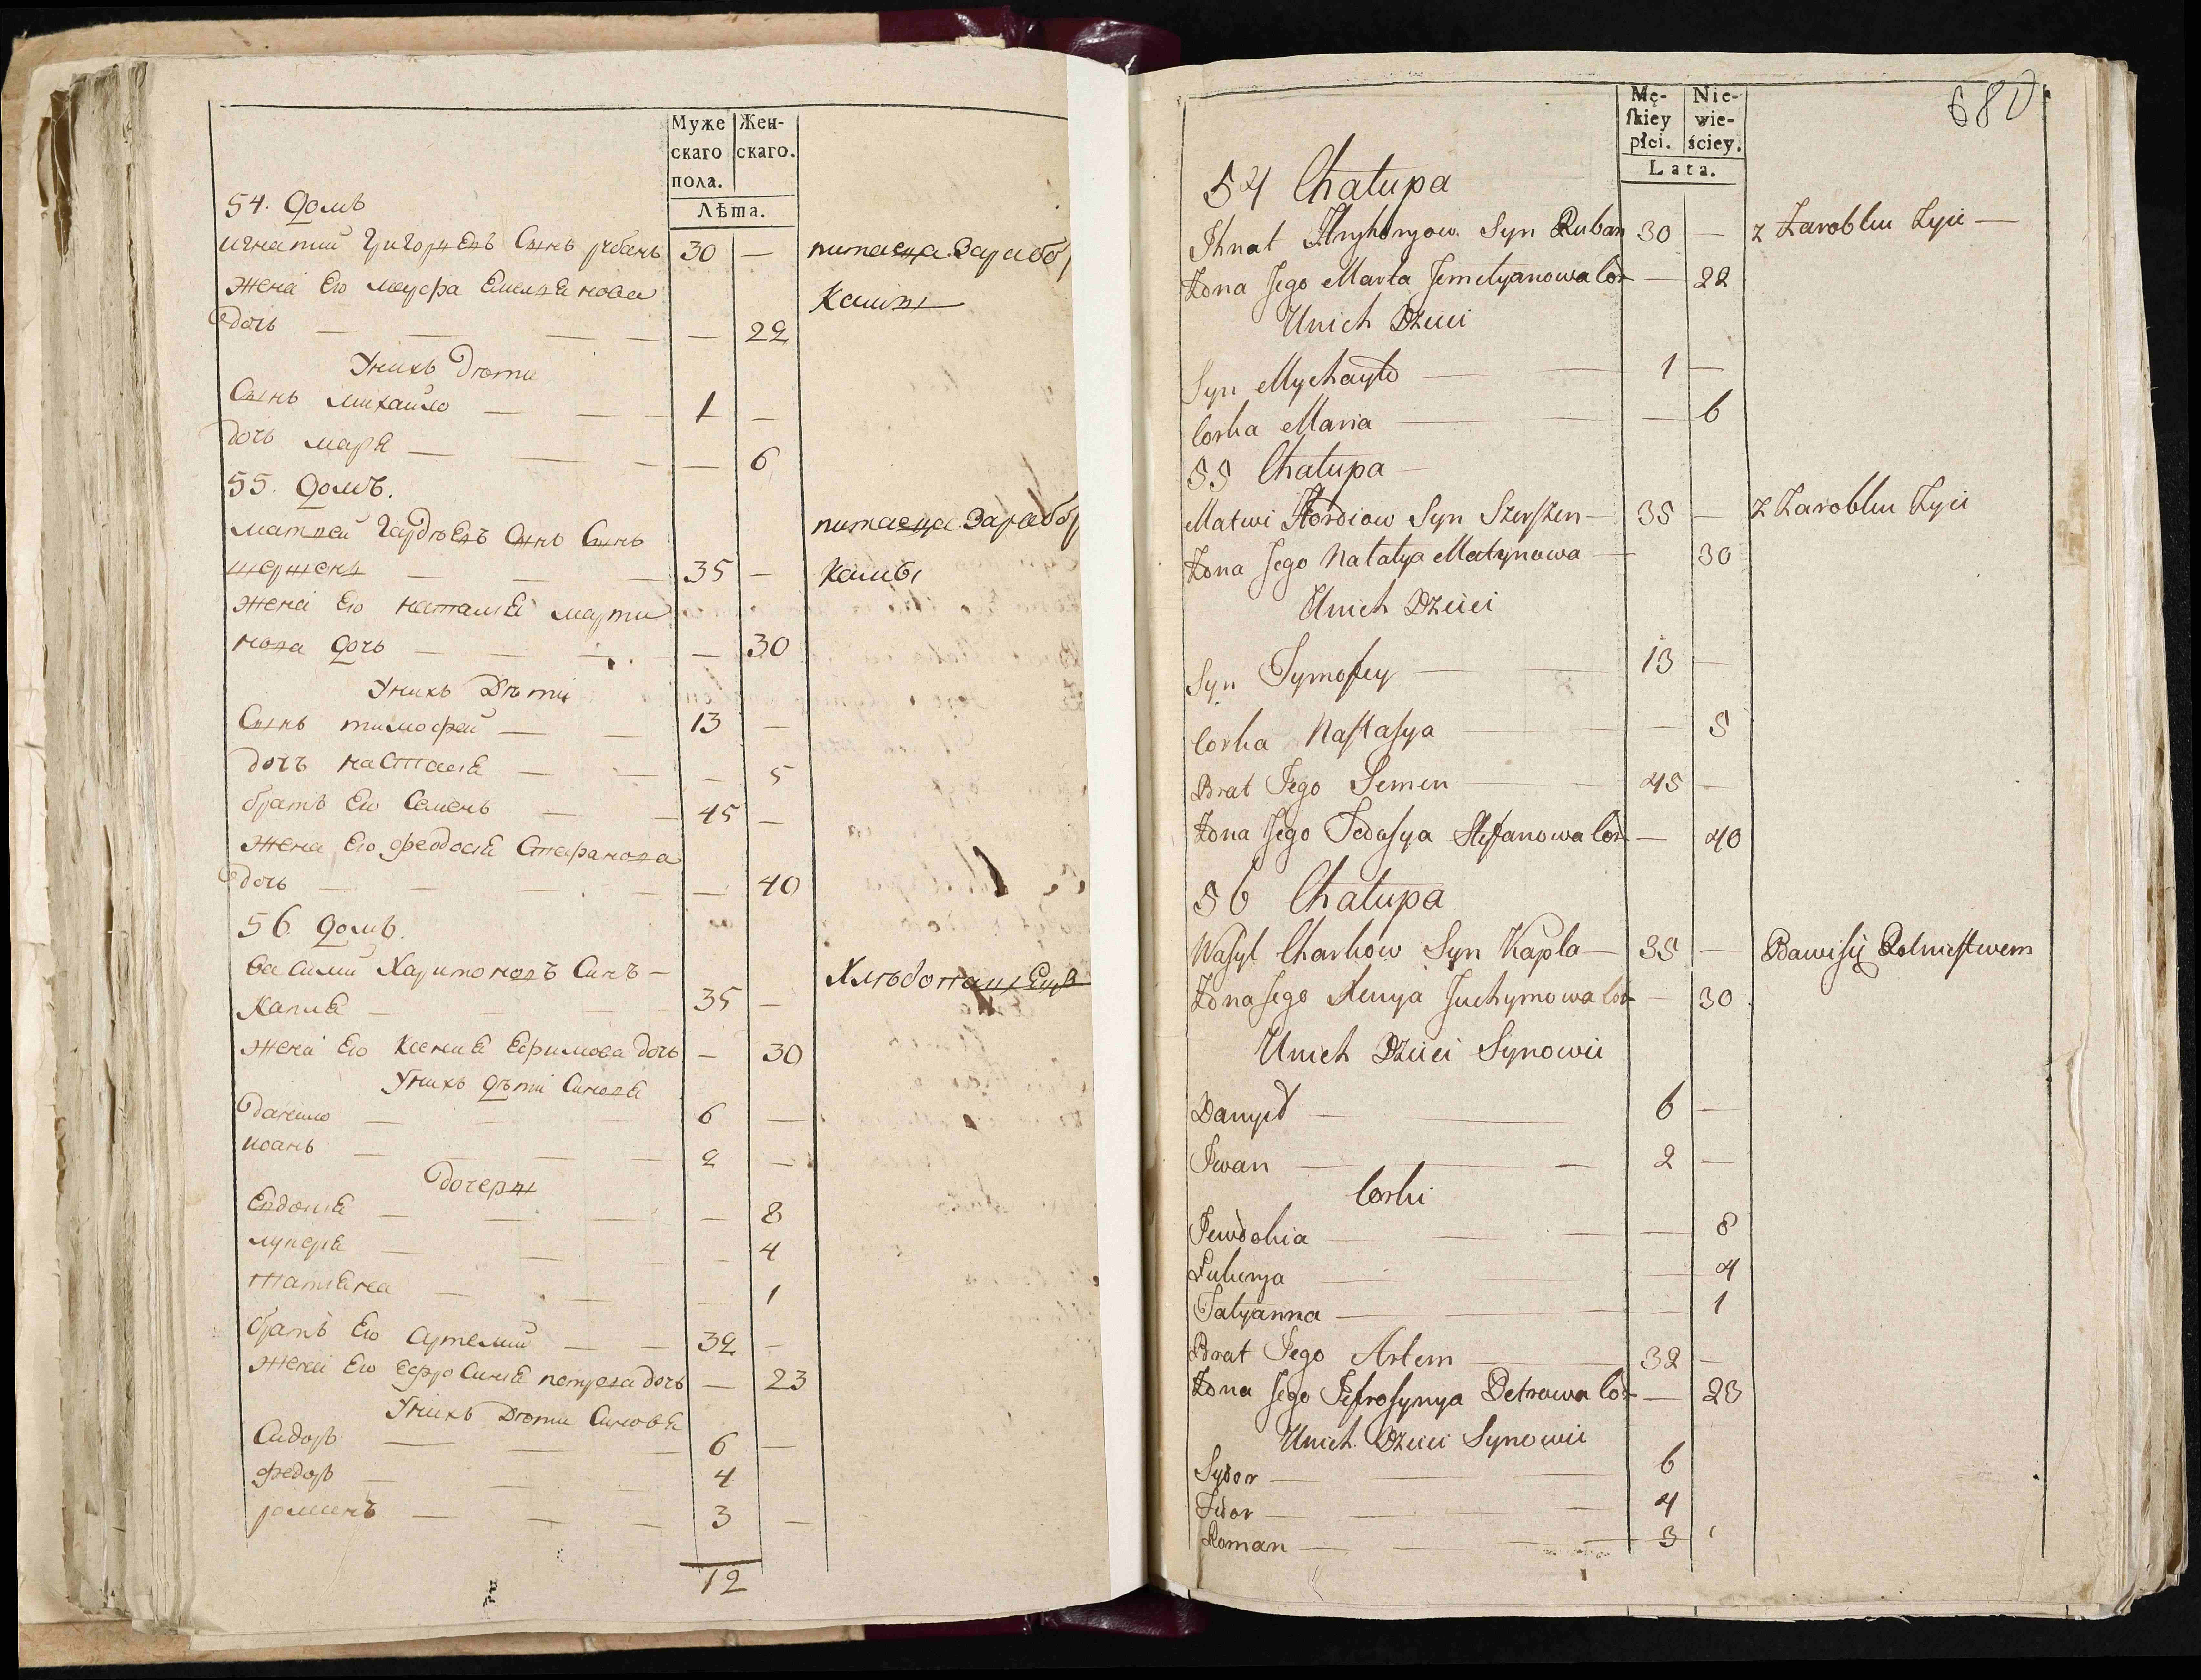 Муже Жен-
скаго скаго.
пола.
Лѣта.
54. Домъ
игнатий Григориевъ Сынъ рубанъ 30 — питаеца Зарабо
жена Его Емелиянова Ками
дочь — — — — 22
Унихъ Дѣти
Сынъ михайло — — — 1 —
дочь мария — — — — 6
55. Домъ.
матвей Гардѣевъ Сынъ Сынъ питаеца Зарабо
шершень — — — 35 — Ками
жена Его наталия марти
нова Дочь — — — — 30
Унихъ Дѣти
Сынъ тимофей — — 13 —
дочъ настасия — — — 5
братъ Его Семенъ — — 45 —
жена Его феодосия Стефанова
дочь — — — — — 40
56. Домъ.
василий Харитоновъ Синъ —
Капля — — — 35 —
жена Его Ксения Ефимова дочь — 30
Унихъ дѣти Синовя
данило — — — 6 —
иоанъ — — — 2 —
Дочери
Евдокия — — — — 8
лукерия — — — 4
татияна — — — 1
братъ Его Артемий — — 32 —
жена Его ефросиния петрова дочь — 23
Унихъ Дѣти Синовя
Сидоръ — — — 6 —
федоръ — — — 4
романъ — — — 3 —
12
680
Mę- Nie-
ſkiey wie-
płci. ściey.
Lata.
54 Chałupa
Ihnat Hryhoryow Syn Ruban 30 — z Zarobku Żyie —
Żona Jego Marta Jemelyanowa Cor — 22
Unich Dzieci
Syn Mychayło — — 1 —
Corka Maria — — — 6
55 Chałupa —
Matwi Hordiow Syn Szerſzen — 35 — z Zarobku Żyie
Żona Jego Natalya Martynowa — 30
Unich Dzieci
Syn Tymofey — — 13 —
Corka Naſtaſya — — — 5
Brat Jego Semen — — 45 —
Żona Jego Fedoſya Stefanowa Cor — 40
56 Chałupa
Waſyl Charkow Syn Kapla — 35 — Bawiſię Rolnictwem
Żona Jego Xenya Juchymowa Cor — 30
Unich Dzieci Synowie
Danyło — — 6 —
Iwan — — — 2 —
Corki
Jewdokia — — — — 8
Łukerya — — — 4
Tatyanna — — — 1
Brat Jego Artem — — 32 —
Żona Jego Jefroſynya Petrowa Cor — 23
Unich Dzieci Synowie
Sydor — — 6
Fedor — — 4
Roman — — — 3